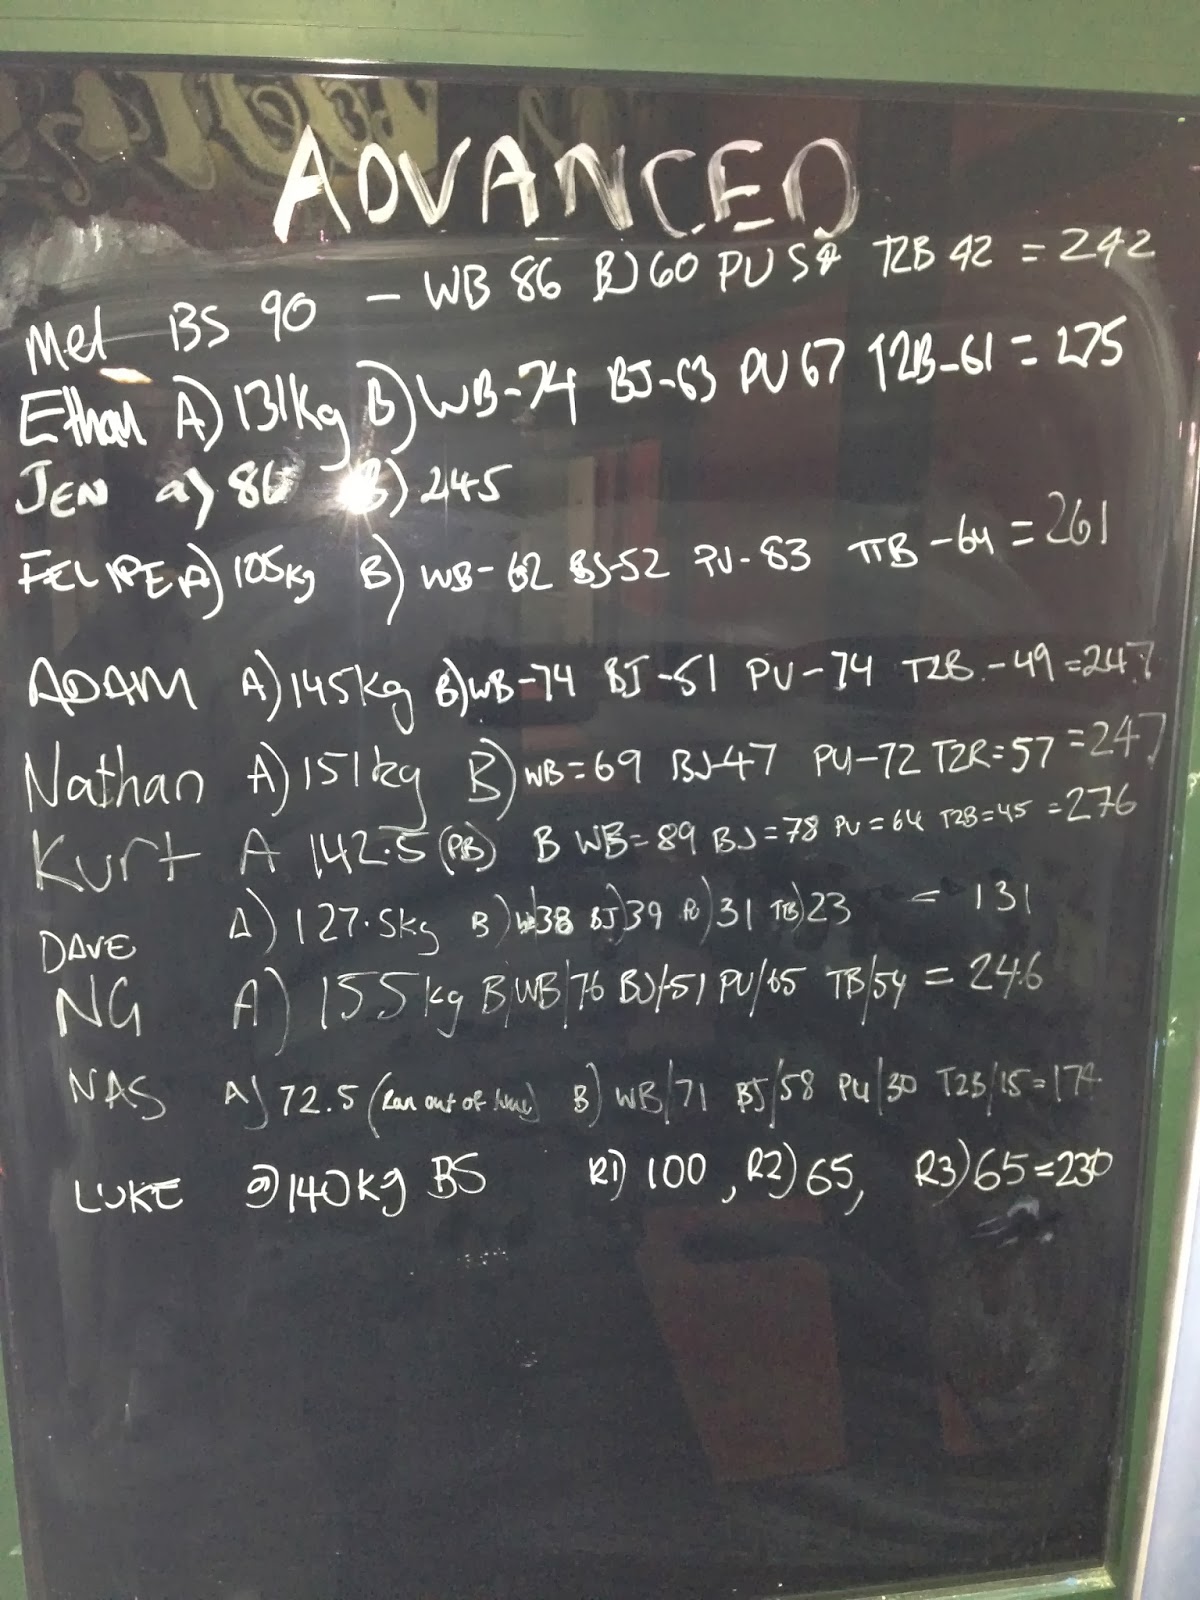 ADVANCED
Mel BS 90 - WB 86 BJ 60 PU 54 T2B 42 = 242
Ethan A) 131kg B) WB-74 BJ-63 PU 67 T2B-61 = 275
JEN a) 86 B) 245
FELIPE A) 105kg B) WB-62 BJ-52 PU-83 TTB-64 = 261
ADAM A) 145kg B) WB-74 BJ-51 PU-74 T2B-49 = 247
Nathan A) 151kg B) WB=69 BJ-47 PU-72 T2B=57 = 247
Kurt A 142.5 (PB) B WB=89 BJ=78 PU=64 T2B=45 = 276
DAVE A) 127.5kg B) WB)38 BJ)39 PU)31 TTB)23 = 131
NG A) 155kg B) WB/76 BJ/51 PU/65 TB/54 = 246
NAS A) 72.5 (Ran out of time) B) WB/71 BJ/58 PU/30 T2B/15 = 174
LUKE a) 140kg BS R1) 100, R2) 65, R3) 65 = 230